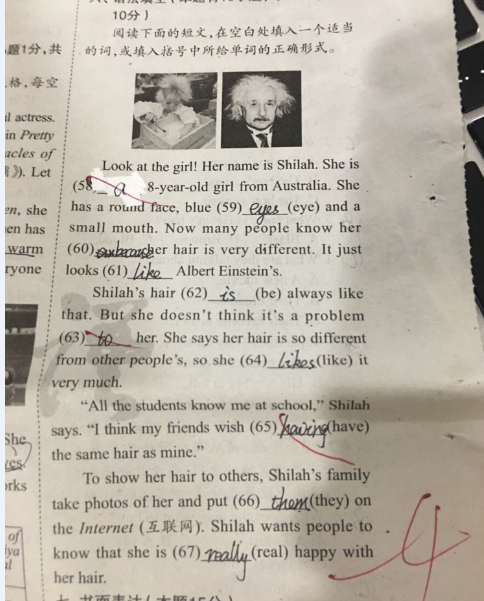 10分)
阅读下面的短文,在空白处填入一个适当
的词,或填入括号中所给单词的正确形式。
题1分,共
格,每空
l actress.
in Pretty
acles of
》). Let
en, she
en has
warm
ryone
She
yes
orks
of
lya
al
Look at the girl! Her name is Shilah. She is
(58 a 8-year-old girl from Australia. She
has a round face, blue (59) eyes (eye) and a
small mouth. Now many people know her
(60) her hair is very different. It just
looks (61) like Albert Einstein's.
Shilah's hair (62) is (be) always like
that. But she doesn't think it's a problem
(63) to her. She says her hair is so different
from other people's, so she (64) likes (like) it
very much.
"All the students know me at school," Shilah
says. "I think my friends wish (65) having (have)
the same hair as mine."
To show her hair to others, Shilah's family
take photos of her and put (66) them (they) on
the Internet (互联网). Shilah wants people to
know that she is (67) really (real) happy with
her hair.
4